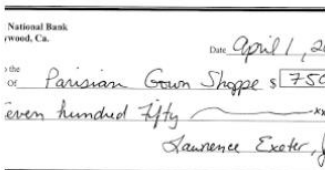 National Bank
wood, Ca.
Date April 1, 2
the
Of Parisian Gown Shoppe $ 750
even hundred fifty xx
Lawrence Exeter, J